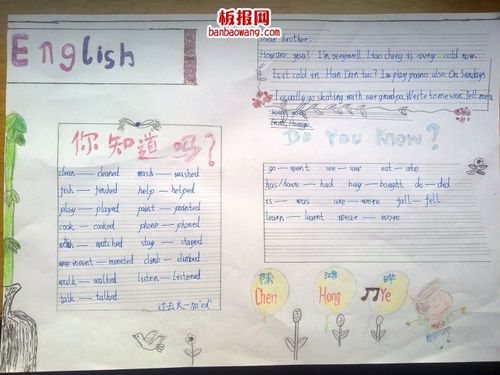 板报网
banbaowang.com
English
Dear brother:
How are you? I'm very well. Liao cheng is very cold now.
Is it cold in Han Dan too? I a play piano also. On Sendays
I usually go skating with our grandpa. Write to me soon. Tell me
你知道吗?
clean — cleaned wash — washed
fish — finshed help — helped
play — played paint — painted
cook — cooked phone — phoned
watched stay — stayed
invent — invented climb — climbed
walk — walked listen — listened
talk — talked
过去式-加'ed'
Do You Know?
go — went see — saw eat — ate
has/have — had buy — bought do — did
is — was are — were fall — fell
learn — learnt wear — wore
陳 鴻 曄
Chen Hong Ye